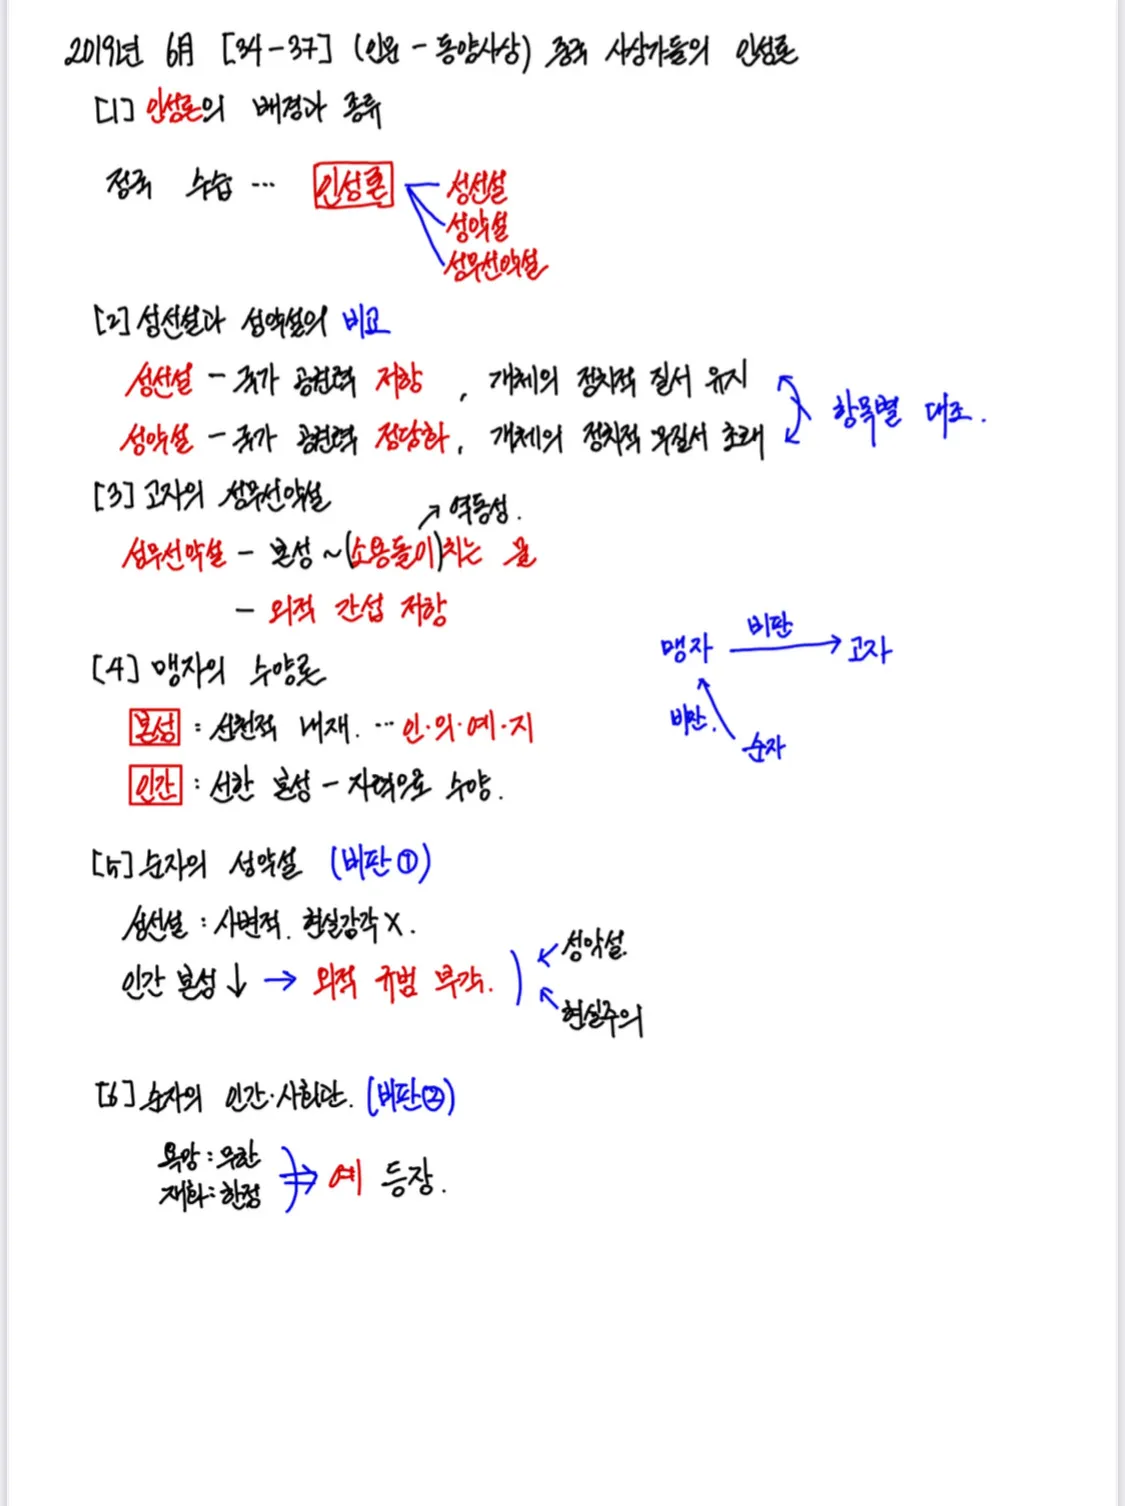 2019년 6月 [34-37] (인문 - 동양사상) 중국 사상가들의 인성론
[1] 인성론의 배경과 종류
정국 수습 ... 인성론
성선설
성악설
성무선악설
[2] 성선설과 성악설의 비교
성선설 - 국가 공권력 저항, 개체의 정치적 질서 유지
성악설 - 국가 공권력 정당화, 개체의 정치적 무질서 초래
항목별 대조.
[3] 고자의 성무선악설
역동성.
성무선악설 - 본성 ~ (소용돌이)치는 물
- 외적 간섭 저항
[4] 맹자의 수양론
맹자 비판 고자
비판.
순자
본성 : 선천적 내재. ... 인·의·예·지
인간 : 선한 본성 - 자력으로 수양.
[5] 순자의 성악설 (비판①)
성선설 : 사변적. 현실감각 X.
인간 본성 ↓ → 외적 규범 부각.
성악설.
현실주의
[6] 순자의 인간·사회관. (비판②)
욕망 : 무한
재화 : 한정
⇒ 예 등장.